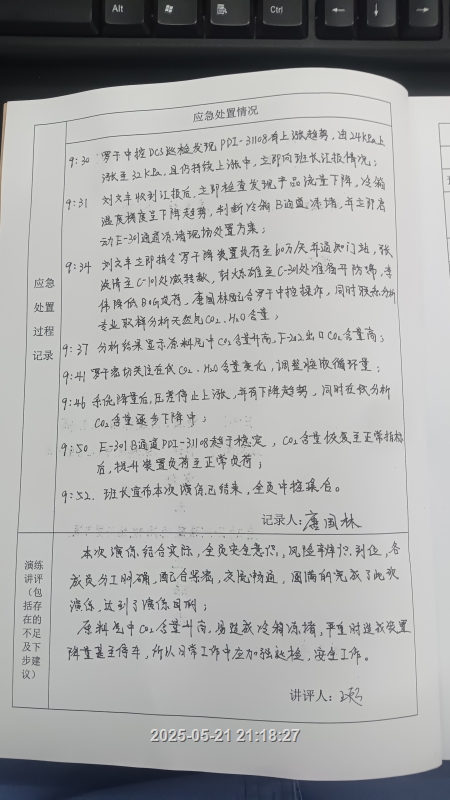 Alt
Ctrl
应急处置情况
应急处置过程记录
9:30 罗宇中控DCS巡检发现PDI-31108有上涨趋势，由24KPa上
涨至32KPa，且仍持续上涨中，立即向班长汇报情况；
9:31 刘文丰收到汇报后，立即检查发现产品流量下降，冷箱
温度梯度呈下降趋势，判断冷箱B通道冻堵，并立即启
动E-301通道冻堵现场处置方案；
9:34 刘文丰立即指令罗宇降装置负荷至60万/天并通知门站，张
波清至C-101处减转数，
至C-301处准备
体降低BOG负荷，唐国林配合罗宇中控操作，同时联系分析
专业取样分析天然气CO2、H2O含量；
9:37 分析结果显示原料气中CO2含量升高，F-202出口CO2含量高；
9:41 罗宇密切关注在线CO2、H2O含量变化，调整胺液循环量；
9:46 系统降量后，压差停止上涨，并有下降趋势，同时在线分析
CO2含量逐步下降中；
9:50 E-301B通道PDI-31108趋于稳定，CO2含量恢复至正常指标
后，提升装置负荷至正常负荷；
9:52. 班长宣布本次演练已结束，全员中控集合。
记录人：唐国林
演练讲评（包括存在的不足及下步建议）
本次演练结合实际，全员安全意识，风险辨识到位，各
成员分工明确，配合默契，交流畅通，圆满的完成了此次
演练，达到了演练目的；
原料气中CO2含量升高，易造成冷箱冻堵，严重时造成装置
降量甚至停车，所以日常工作中应加强巡检，安全工作。
讲评人：
2025-05-21 21:18:27